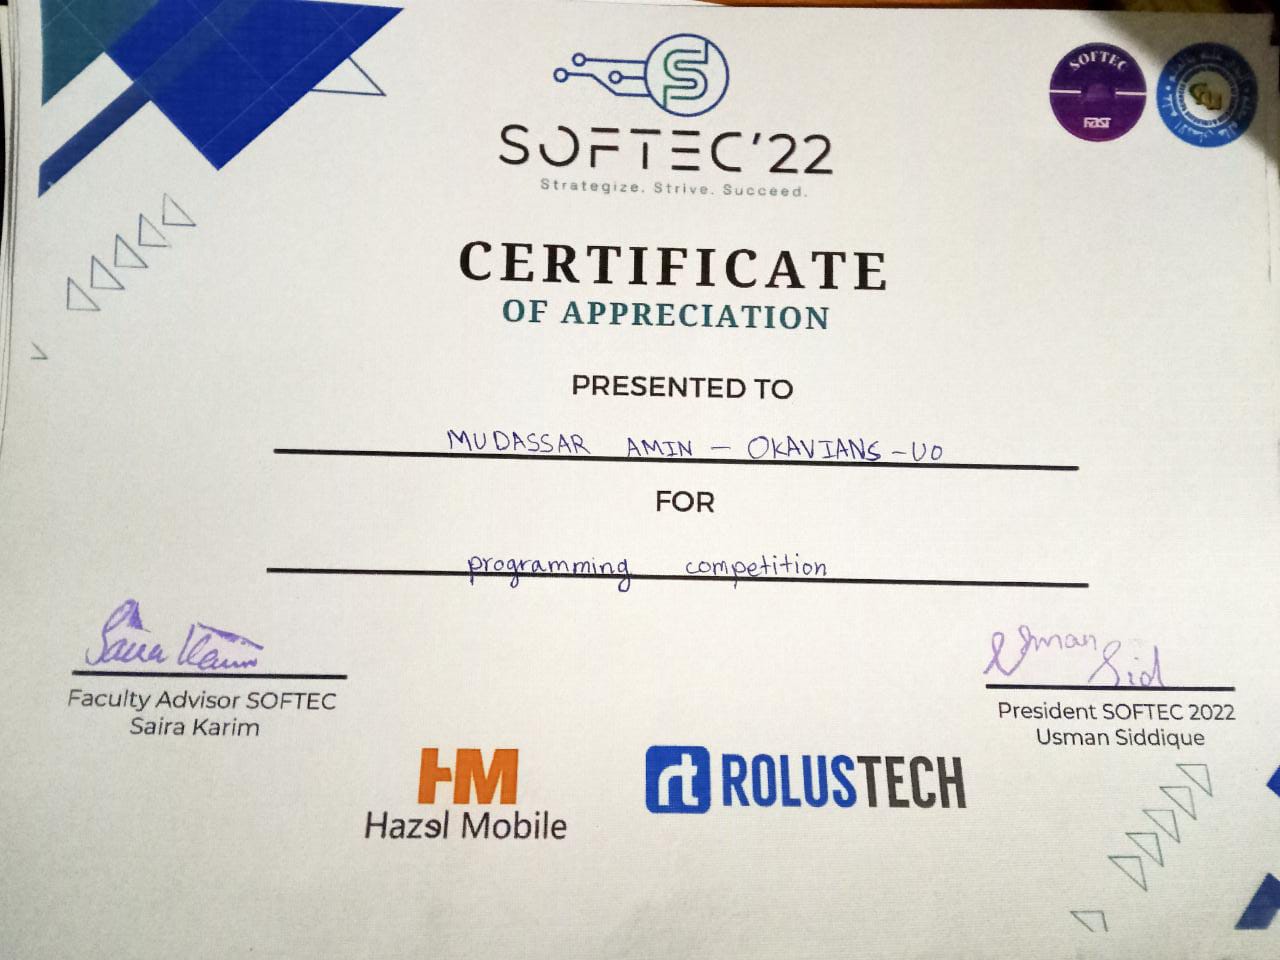 SOFTEC'22
Strategize. Strive. Succeed.
SOFTEC
FAST
CERTIFICATE
OF APPRECIATION
PRESENTED TO
MUDASSAR AMIN - OKAVIANS - UO
FOR
programming competition
Saira Karim
Usman Sid
Faculty Advisor SOFTEC
Saira Karim
President SOFTEC 2022
Usman Siddique
HM
Hazel Mobile
rt ROLUSTECH